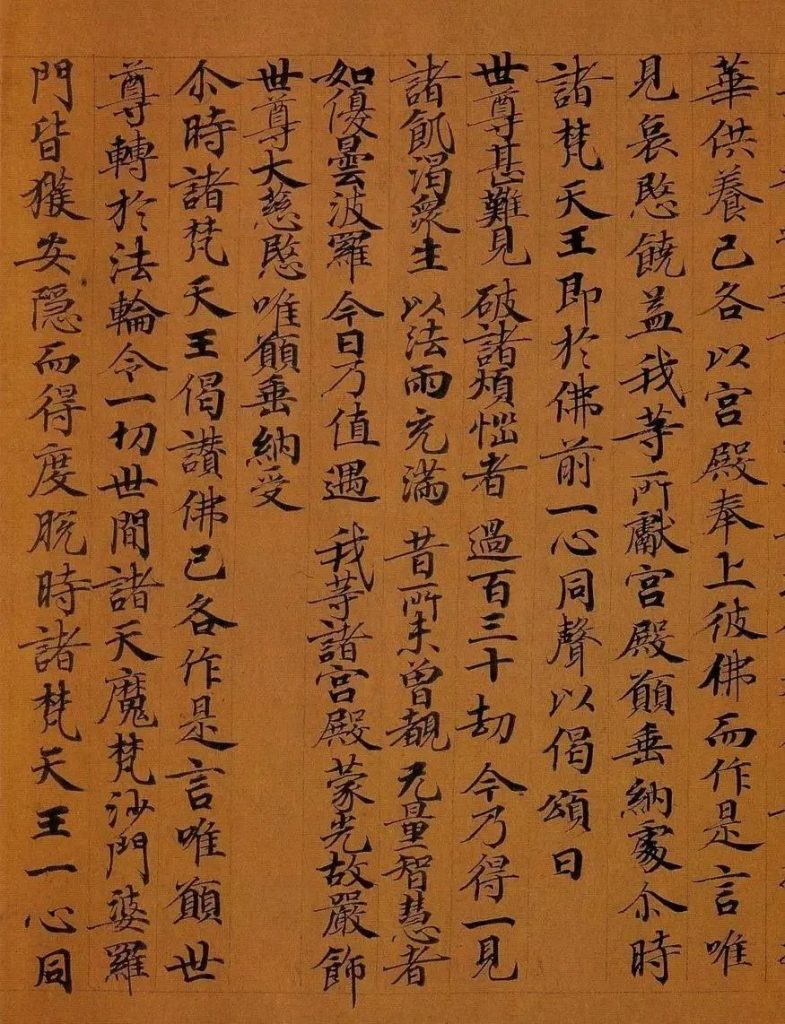 華供養已各以宮殿奉上彼佛而作是言唯
見哀愍饒益我等所獻宮殿願垂納處尒時
諸梵天王即於佛前一心同聲以偈頌曰
世尊甚難見 破諸煩惱者 過百三十劫 今乃得一見
諸飢渴衆生 以法雨充滿 昔所未曾覩 无量智慧者
如優曇波羅 今日乃值遇 我等諸宮殿 蒙光故嚴飾
世尊大慈愍 唯願垂納受
尒時諸梵天王偈讚佛已各作是言唯願世
尊轉於法輪令一切世間諸天魔梵沙門婆羅
門皆獲安隱而得度脫時諸梵天王一心同